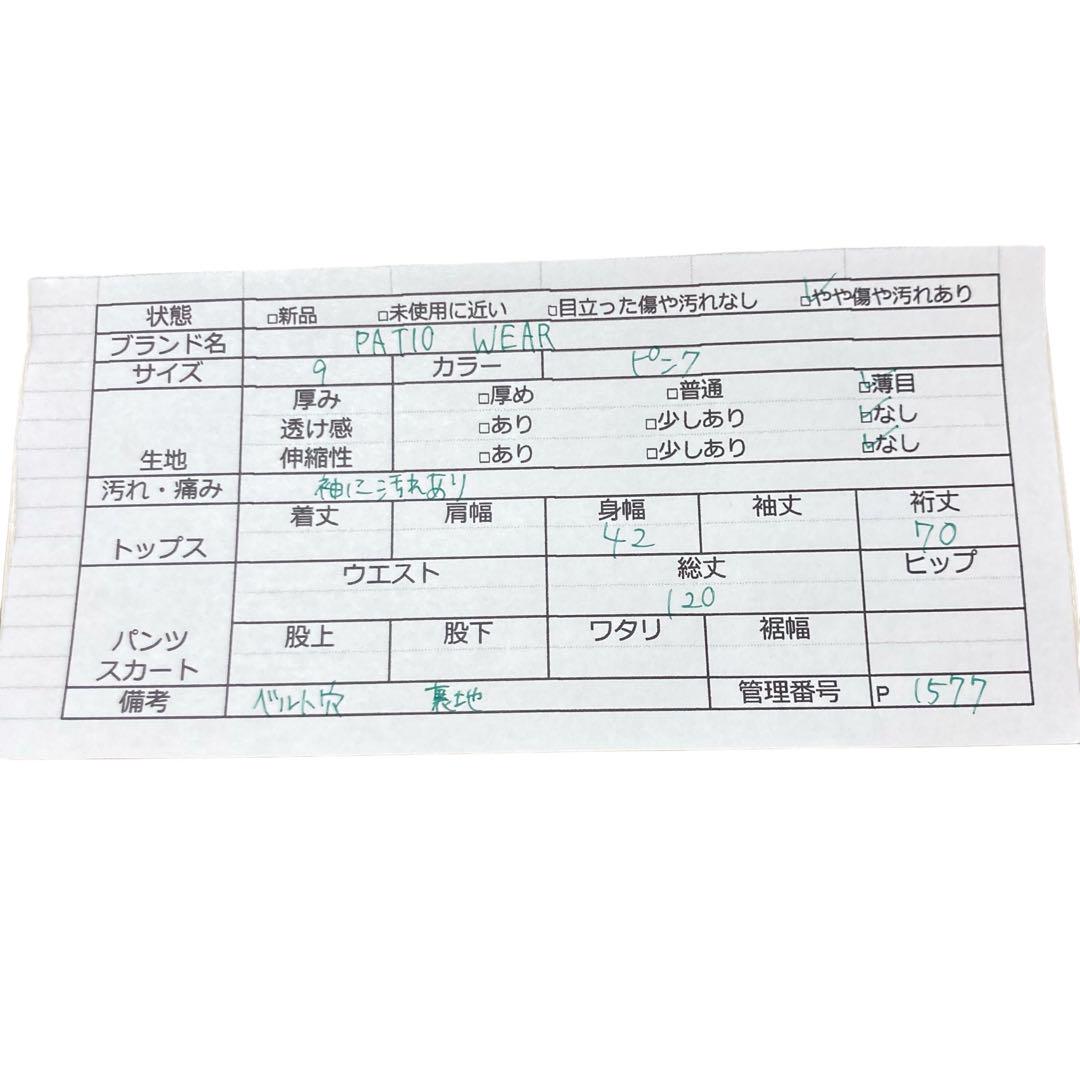 状態 □新品 □未使用に近い □目立った傷や汚れなし ☑やや傷や汚れあり
ブランド名 PATIO WEAR
サイズ 9 カラー ピンク
生地 厚み □厚め □普通 ☑薄目
透け感 □あり □少しあり ☑なし
伸縮性 □あり □少しあり ☑なし
汚れ・痛み 袖に汚れあり
トップス 着丈 肩幅 身幅 袖丈 裄丈
42 70
パンツ スカート ウエスト 総丈 ヒップ
120
股上 股下 ワタリ 裾幅
備考 ベルト穴 裏地 管理番号 P 1577